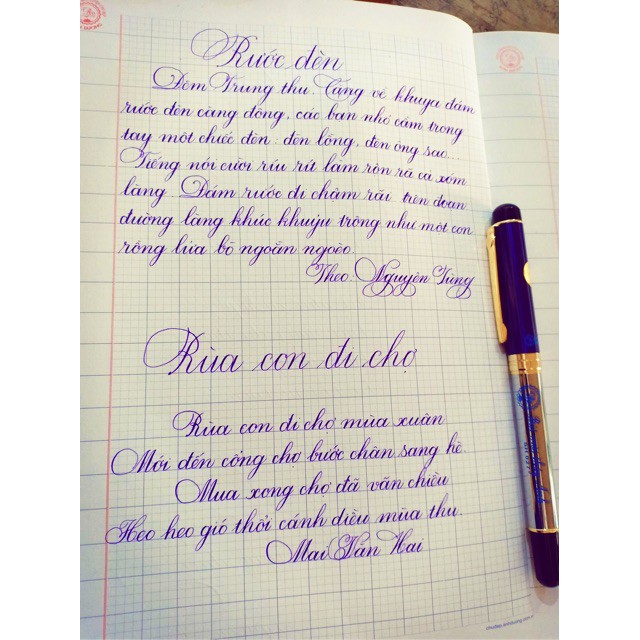 Rước đèn
Đêm Trung thu. Càng về khuya đám
rước đèn càng đông, các bạn nhỏ cầm trong
tay một chiếc đèn: đèn lồng, đèn ông sao...
Tiếng nói cười ríu rít làm rộn rã cả xóm
làng. Đám rước đi chậm rãi trên đoạn
đường làng khúc khuỷu trông như một con
rồng lửa bò ngoằn ngoèo.
Theo: Nguyễn Tùng
Rùa con đi chợ
Rùa con đi chợ mùa xuân
Mới đến cổng chợ bước chân sang hè.
Mua xong chợ đã vãn chiều
Heo heo gió thổi cánh diều mùa thu.
Mai Văn Hai